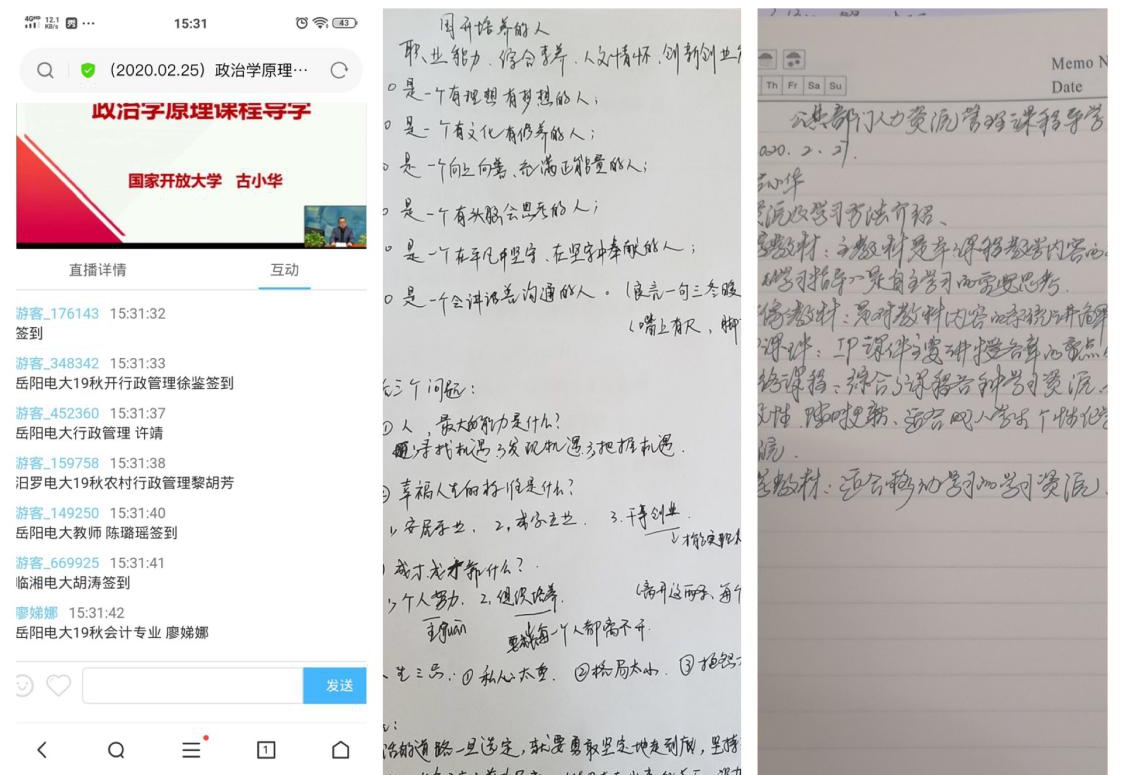 4GHD 12.1 KB/s 15:31 43
(2020.02.25)政治学原理…
政治学原理课程导学
国家开放大学 古小华
直播详情 互动
游客_176143 15:31:32
签到
游客_348342 15:31:33
岳阳电大19秋开行政管理徐鉴签到
游客_452360 15:31:37
岳阳电大行政管理 许靖
游客_159758 15:31:38
汨罗电大19秋农村行政管理黎胡芳
游客_149250 15:31:40
岳阳电大教师 陈璐瑶签到
游客_669925 15:31:41
临湘电大胡涛签到
廖娣娜 15:31:42
岳阳电大19秋会计专业 廖娣娜
发送
1
国开培养的人
职业能力、综合素养、人文情怀、创新创业
是一个有理想有梦想的人;
是一个有文化有修养的人;
是一个向上向善、充满正能量的人;
是一个有头脑会思考的人;
是一个在平凡中坚守、在坚守中奉献的人;
是一个会讲话善沟通的人。(良言一句三冬暖
(嘴上有尺,脚
三个问题:
①人,最大的能力是什么?
寻找机遇→发现机遇→把握机遇.
幸福人生的标准是什么?
1,安居乐业. 2, 成家立业. 3.干事创业.
成才成才靠什么?
1,个人努力. 2,组织培养. (离开这两条、每个
主guān 每一个人都离不开.
生三忌:①私心太重. ②格局太小. ③
的道路一旦选定,就要勇敢坚定地走到底,坚持
Memo N
Th Fr Sa Su Date
公共部门人力资源管理课程导学
020.2.27.
古小华
资源及学习方法介绍、
教材:主教材是本课程教学内容的
学习指导、是自主学习的需要思考.
教材:是对教材内容的系统讲解
课件:IP课件主要讲授各章的重点
络课程:综合了课程各种学习资源、
性、随时更新、适合成人学生个性化
源.
教材:适合移动学习的学习资源